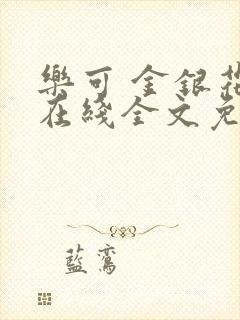 樂可 金銀花
在綫全文免
藍鸞